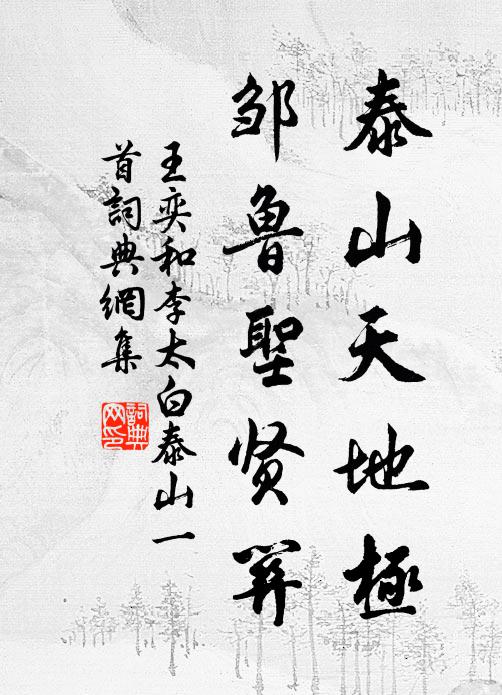 泰山天地極
邹魯聖贤開
王奕和李太白泰山一
首詞典網集
詞典
网印